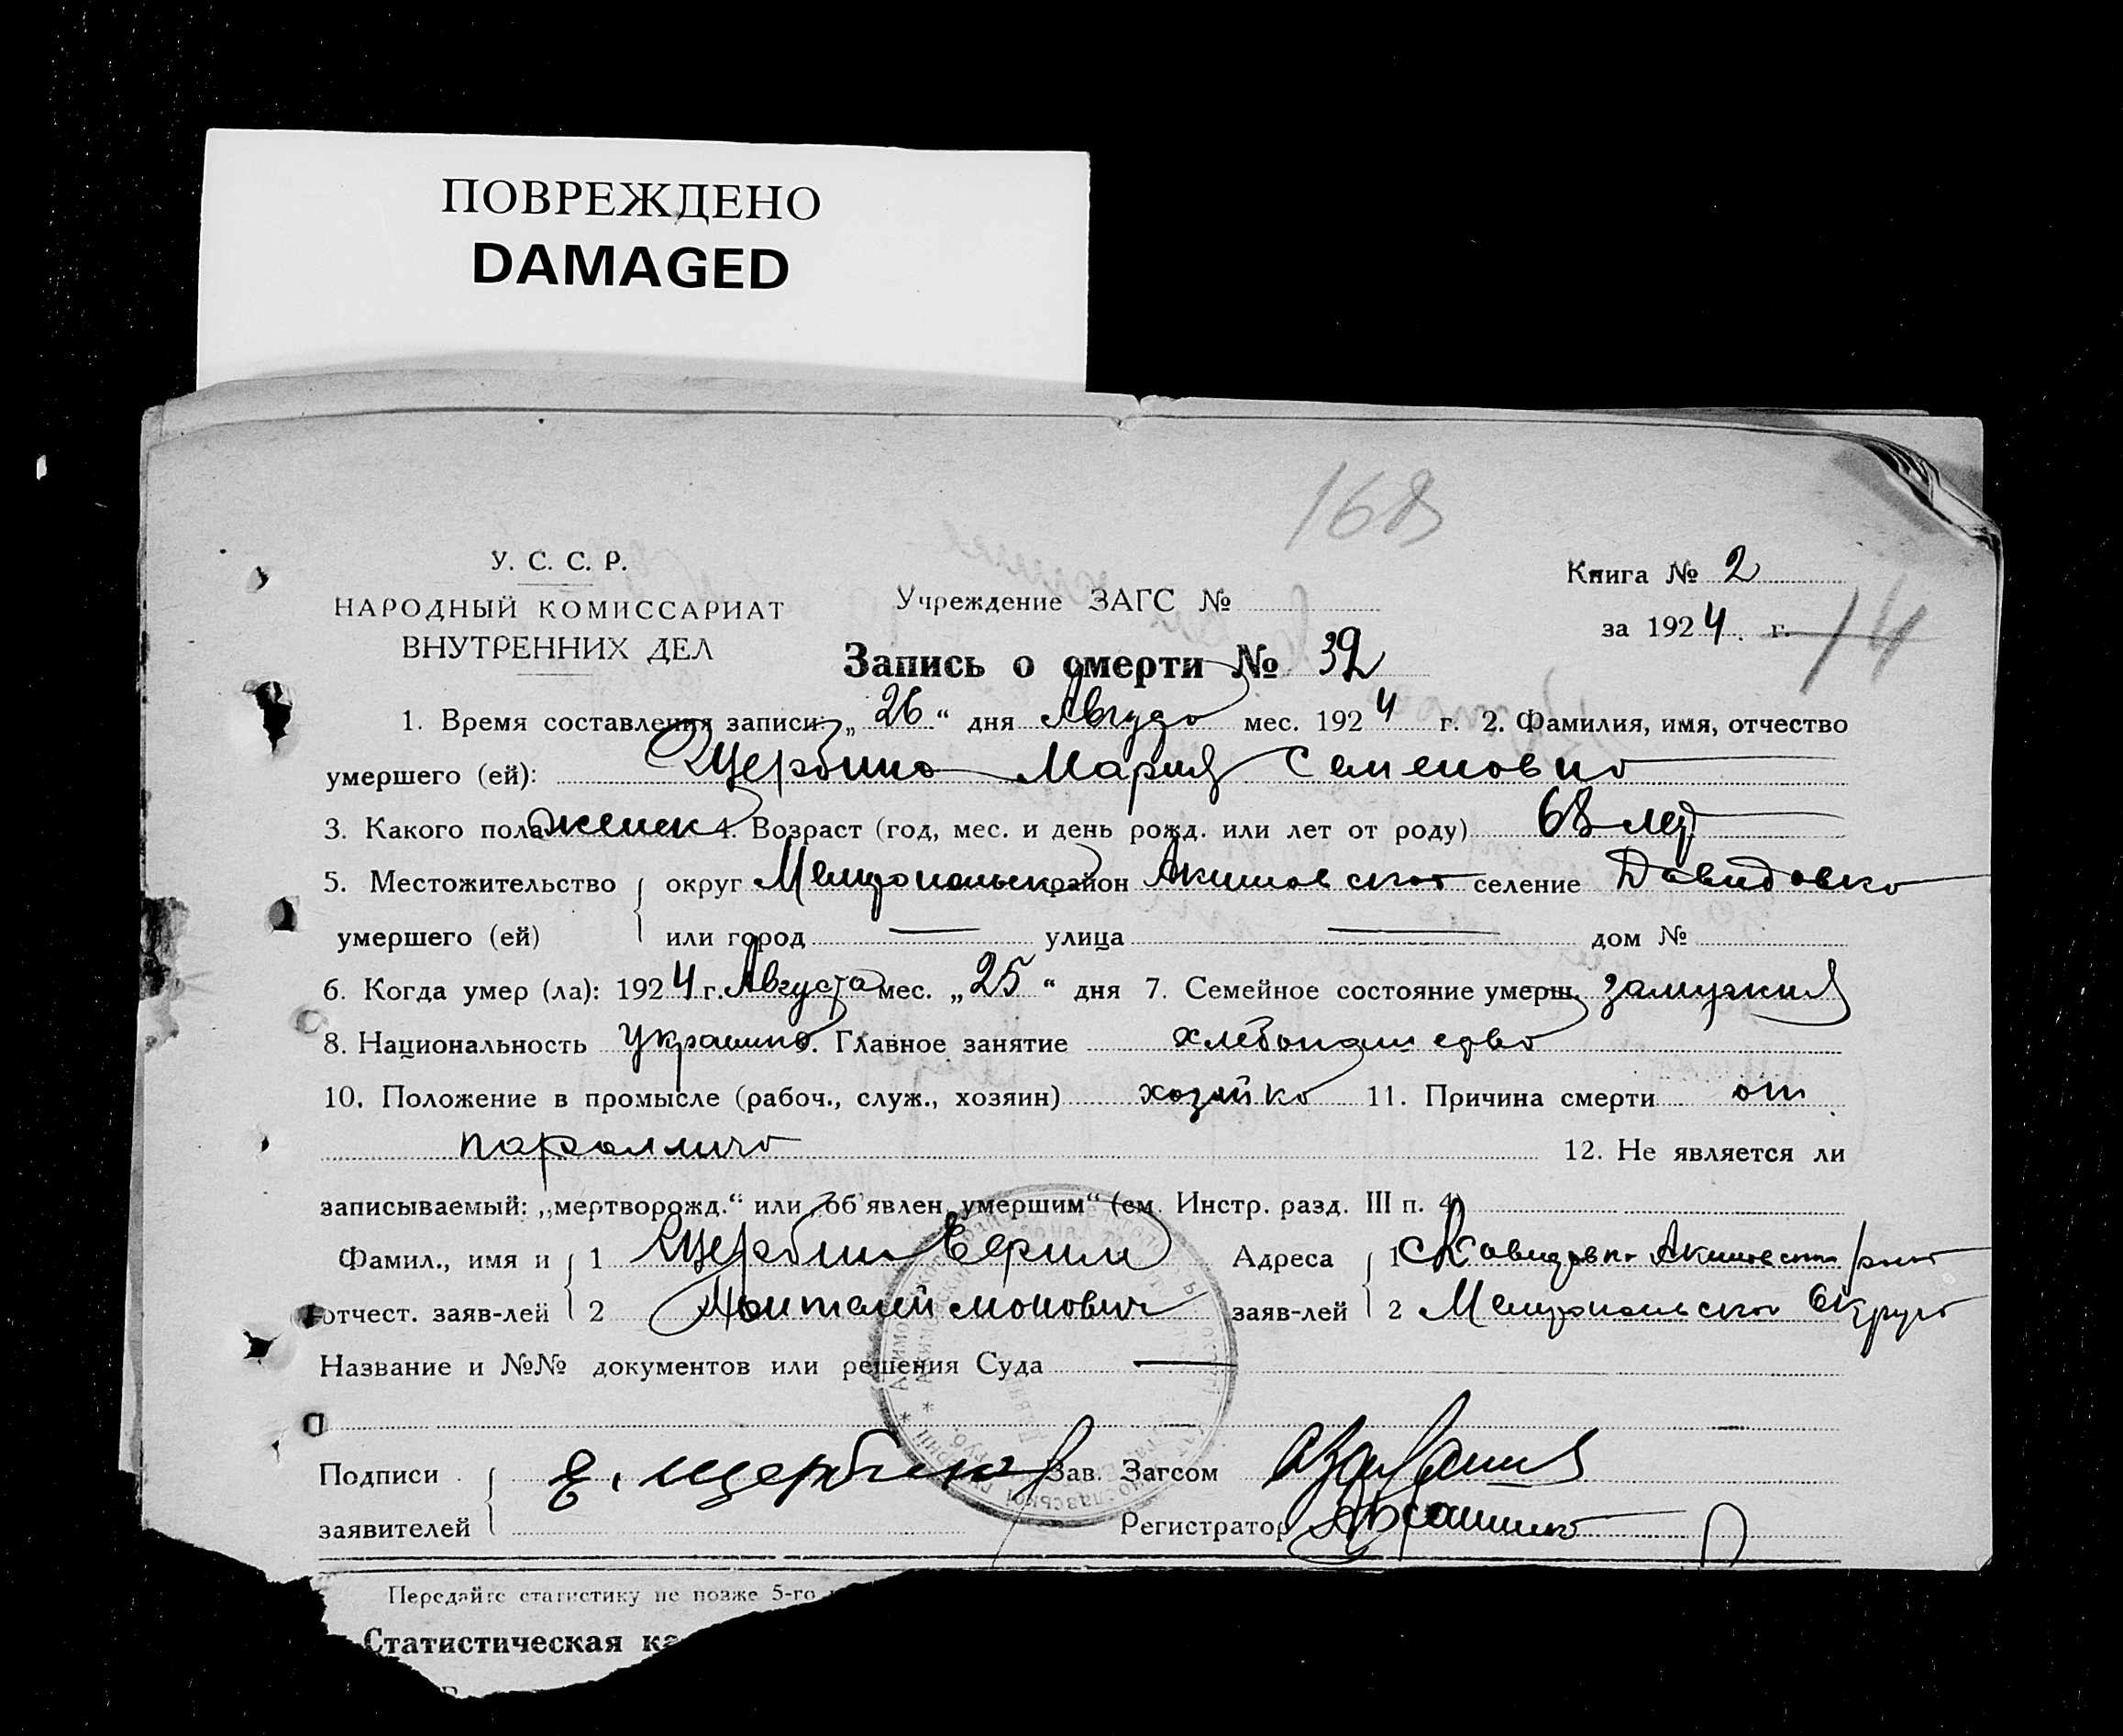 ПОВРЕЖДЕНО
DAMAGED
168
У. С. С. Р.
НАРОДНЫЙ КОМИССАРИАТ
ВНУТРЕННИХ ДЕЛ
Учреждение ЗАГС №
Книга № 2
за 1924 г.
14
Запись о смерти № 32
1. Время составления записи: „ 26 “ дня Августа мес. 1924 г. 2. Фамилия, имя, отчество
умершего (ей): Щербина Мария Семеновна
3. Какого пола женск 4. Возраст (год, мес. и день рожд. или лет от роду) 68 лет
5. Местожительство округ Мелитопольск район Акимовского селение Давидовка
умершего (ей) или город — улица — дом №
6. Когда умер (ла): 1924 г. Августа мес. „ 25 “ дня 7. Семейное состояние умерш. замужния
8. Национальность Украинка 9. Главное занятие хлебопашество
10. Положение в промысле (рабоч., служ., хозяин) хозяйка 11. Причина смерти от
паралича 12. Не является ли
записываемый: „мертворожд.“ или „об'явлен умершим“ (см. Инстр. разд. III п. 4)
Фамил., имя и 1 Щербина Ефрим Адреса 1 с Давидовка Акимовского р
отчест. заяв-лей 2 заяв-лей 2 Мелитопольского Округа
Название и №№ документов или решения Суда —
Подписи Е. Щербина Зав. Загсом
заявителей Регистратор
Передайте статистику не позже 5-го
Статистическая ка